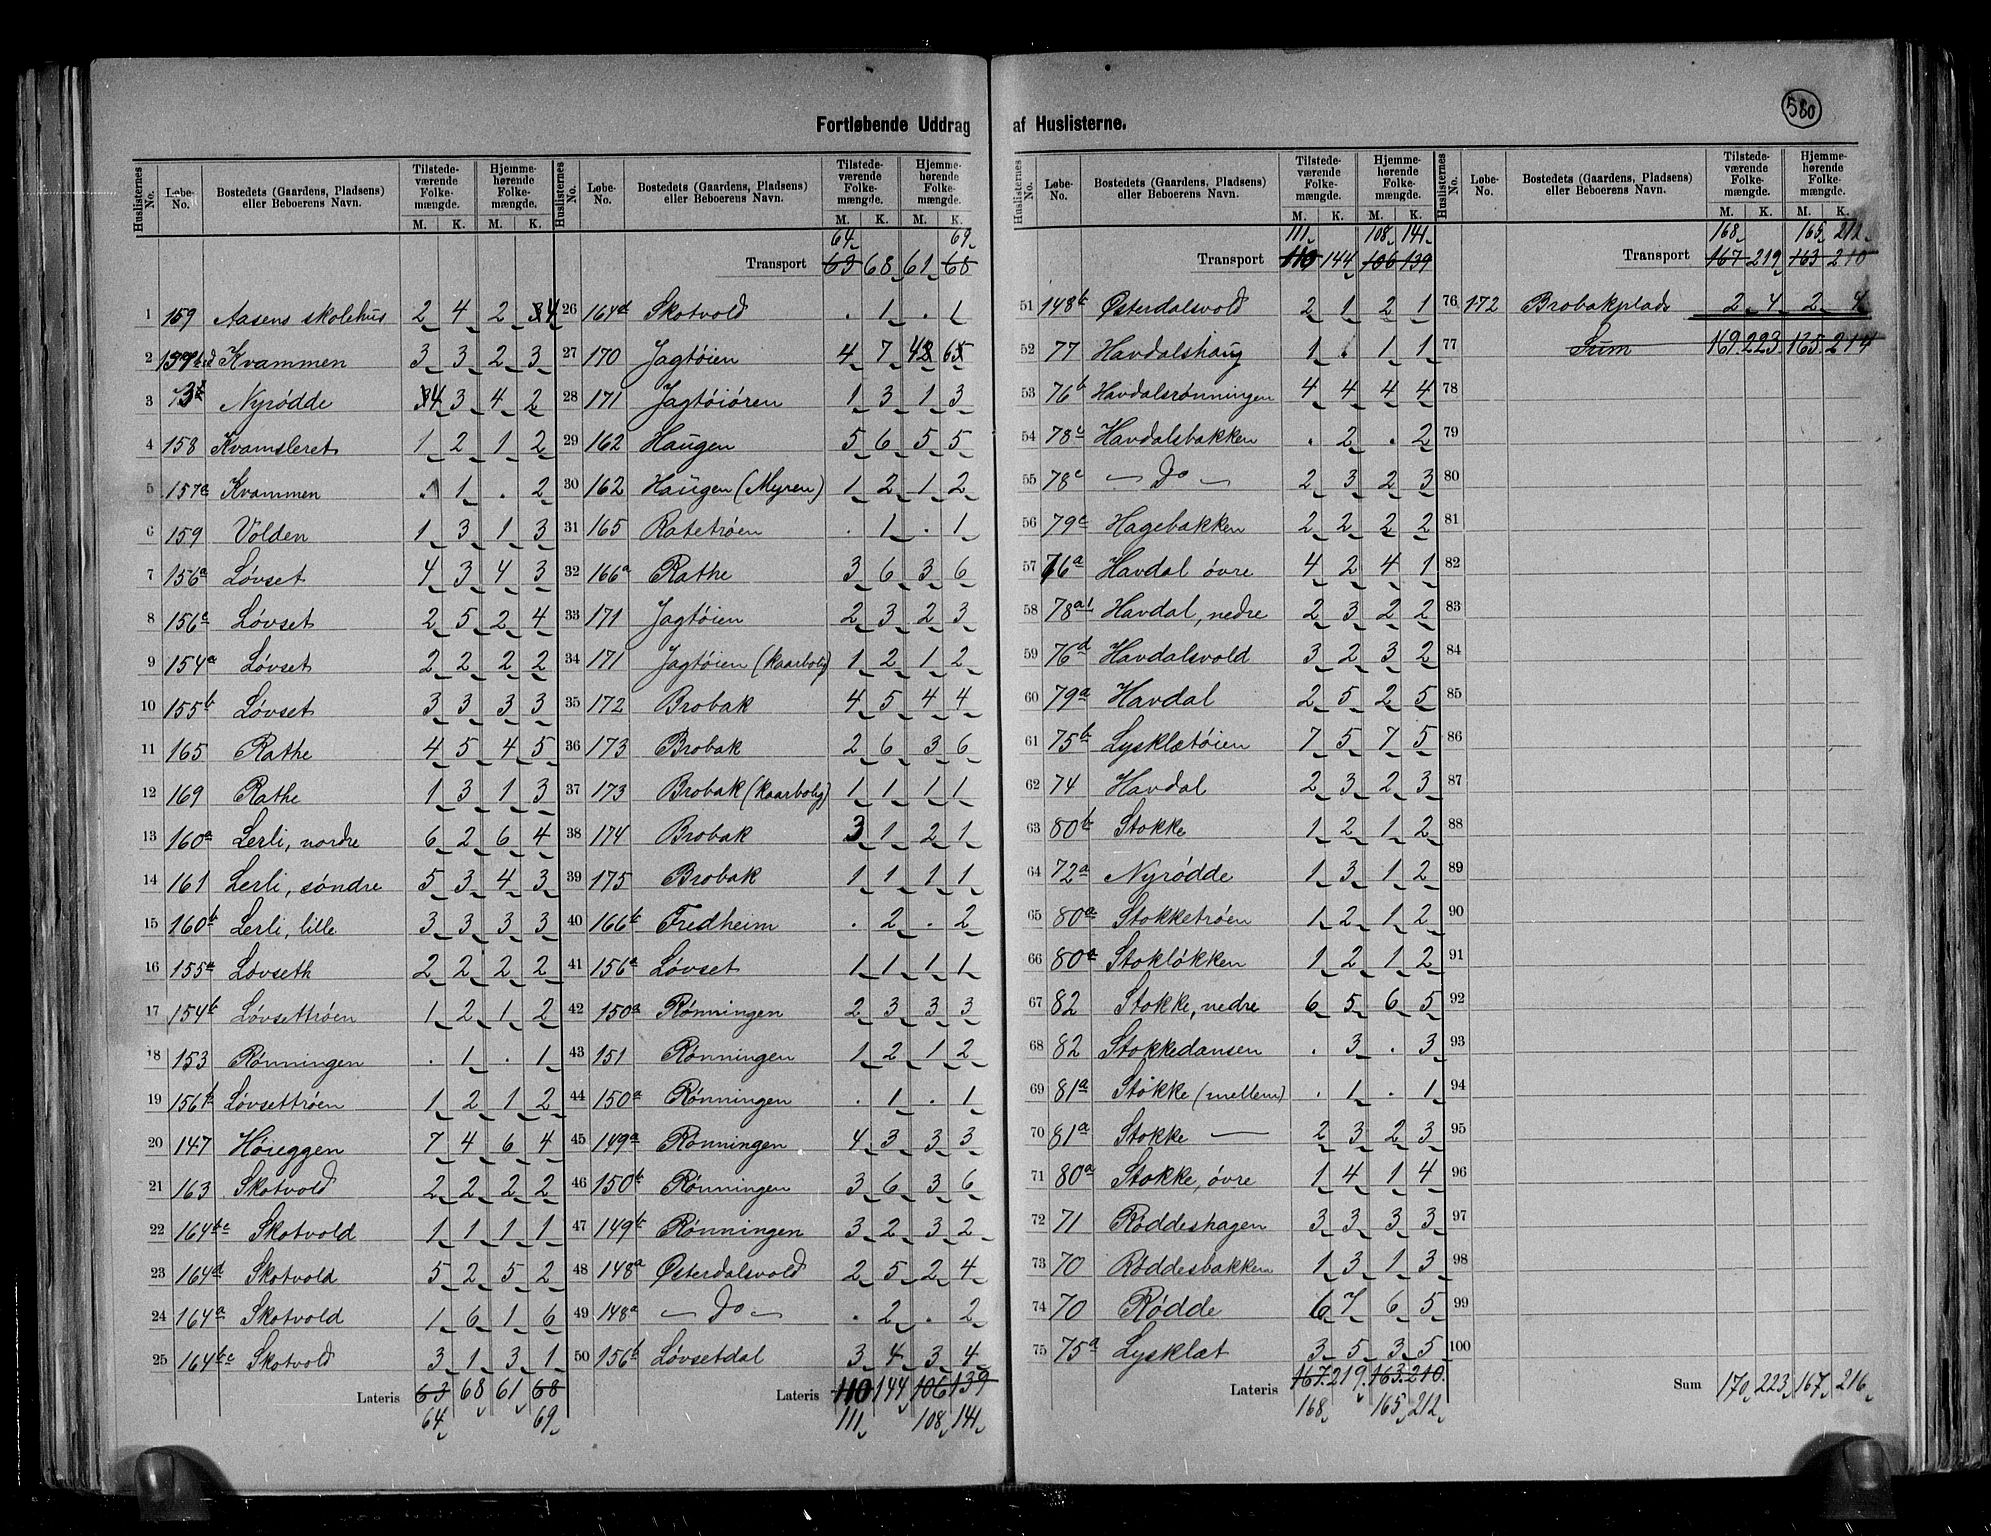 580
Fortløbende Uddrag af Huslisterne.
Huslisternes No. | Løbe-No. | Bostedets (Gaardens, Pladsens) eller Beboerens Navn. | Tilstedeværende Folkemængde. M. K. | Hjemmehørende Folkemængde. M. K.
1 159 Aasens skolehus 2 4 2 4
2 Kvammen 3 3 2 3
3 Nyrødde 4 3 4 2
4 158 Kvamsleret 1 2 1 2
5 157a Kvammen . 1 . 2
6 159 Volden 1 3 1 3
7 156a Løvset 4 3 4 3
8 156c Løvset 2 5 2 4
9 154a Løvset 2 2 2 2
10 155b Løvset 3 3 3 3
11 165 Rathe 4 5 4 5
12 169 Rathe 1 3 1 3
13 160a Lerli, nordre 6 2 6 4
14 161 Lerli, søndre 5 3 4 3
15 160b Lerli, lille 3 3 3 3
16 155a Løvseth 2 2 2 2
17 154b Løvsettrøen 1 2 1 2
18 153 Rønningen . 1 . 1
19 156b Løvsettrøen 1 2 1 2
20 147 Høieggen 7 4 6 4
21 163 Skotvold 2 2 2 2
22 164bc Skotvold 1 1 1 1
23 164d Skotvold 5 2 5 2
24 164a Skotvold 1 6 1 6
25 164bc Skotvold 3 1 3 1
Lateris 63 68 61 68
64 69
64 69
Transport 63 68 61 68
26 164d Skotvold . 1 . 1
27 170 Jagtøien 4 7
28 171 Jagtøiøren 1 3 1 3
29 162 Haugen 5 6 5 5
30 162 Haugen (Myren) 1 2 1 2
31 165 Ratetrøen . 1 . 1
32 166a Rathe 3 6 3 6
33 171 Jagtøien 2 3 2 3
34 171 Jagtøien (kaarbolig) 1 2 1 2
35 172 Brobak 4 5 4 4
36 173 Brobak 2 6 3 6
37 173 Brobak (kaarbolig) 1 1 1 1
38 174 Brobak 3 1 2 1
39 175 Brobak 1 1 1 1
40 166b Fredheim . 2 . 2
41 156a Løvset 1 1 1 1
42 150a Rønningen 2 3 3 3
43 151 Rønningen 1 2 1 2
44 150a Rønningen . 1 . 1
45 149a Rønningen 4 3 3 3
46 150b Rønningen 3 6 3 6
47 149b Rønningen 3 2 3 2
48 148a Østerdalsvold 2 5 2 4
49 148a — Do — . 2 . 2
50 156b Løvsetdal 3 4 3 4
Lateris 110 144 106 139
111 108 141
111 108 141
Transport 110 144 106 139
51 148b Østerdalsvold 2 1 2 1
52 77 Havdalshaug 1 . 1 1
53 76b Havdalsrønningen 4 4 4 4
54 78c Havdalsbakken . 2 . 2
55 78c — Do — 2 3 2 3
56 79c Hagebakken 2 2 2 2
57 76a Havdal øvre 4 2 4 1
58 78a1 Havdal, nedre 2 3 2 2
59 76d Havdalsvold 3 2 3 2
60 79a Havdal 2 5 2 5
61 75b Lysklætøien 7 5 7 5
62 74 Havdal 2 3 2 3
63 80b Stokke 1 2 1 2
64 72a Nyrødde 1 3 1 2
65 80a Stokketrøen 1 2 1 2
66 80a Stokløkken 1 2 1 2
67 82 Stokke, nedre 6 5 6 5
68 82 Stokkedansen . 3 . 3
69 81a Stokke (mellem) . 1 . 1
70 81a Stokke — 2 3 2 3
71 80a Stokke, øvre 1 4 1 4
72 71 Røddeshagen 3 3 3 3
73 70 Røddesbakken 1 3 1 3
74 70 Rødde 6 7 6 5
75 75a Lysklæt 3 5 3 5
Lateris 167 219 163 210
168 165 212
168 165 212
Transport 167 219 163 210
76 172 Brobakplads 2 4 2 4
77 Sum 169 223 165 214
78
79
80
81
82
83
84
85
86
87
88
89
90
91
92
93
94
95
96
97
98
99
100
Sum 170 223 167 216